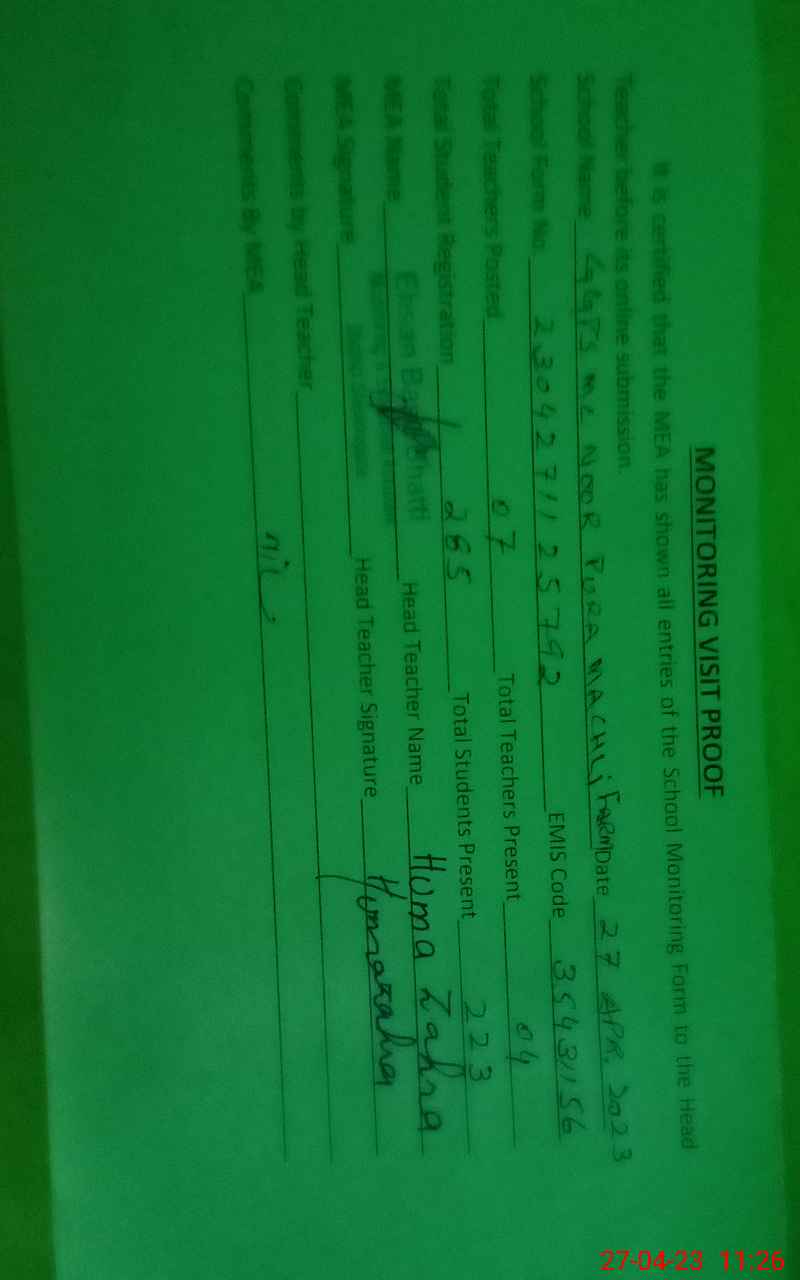 MONITORING VISIT PROOF
It is certified that the MEA has shown all entries of the School Monitoring Form to the Head
Teacher before its online submission.
School Name GGPS MC NOOR PURA MACHLI FARM Date 27 APR. 2023
School Form No. 2304271125792 EMIS Code 35431156
Total Teachers Posted 07 Total Teachers Present 04
Total Student Registration 265 Total Students Present 223
MEA Name Ehsan Bhatti Head Teacher Name Huma Zahra
MEA Signature Head Teacher Signature Humazahra
Comments by Head Teacher
Comments By MEA nil
27-04-23 11:26